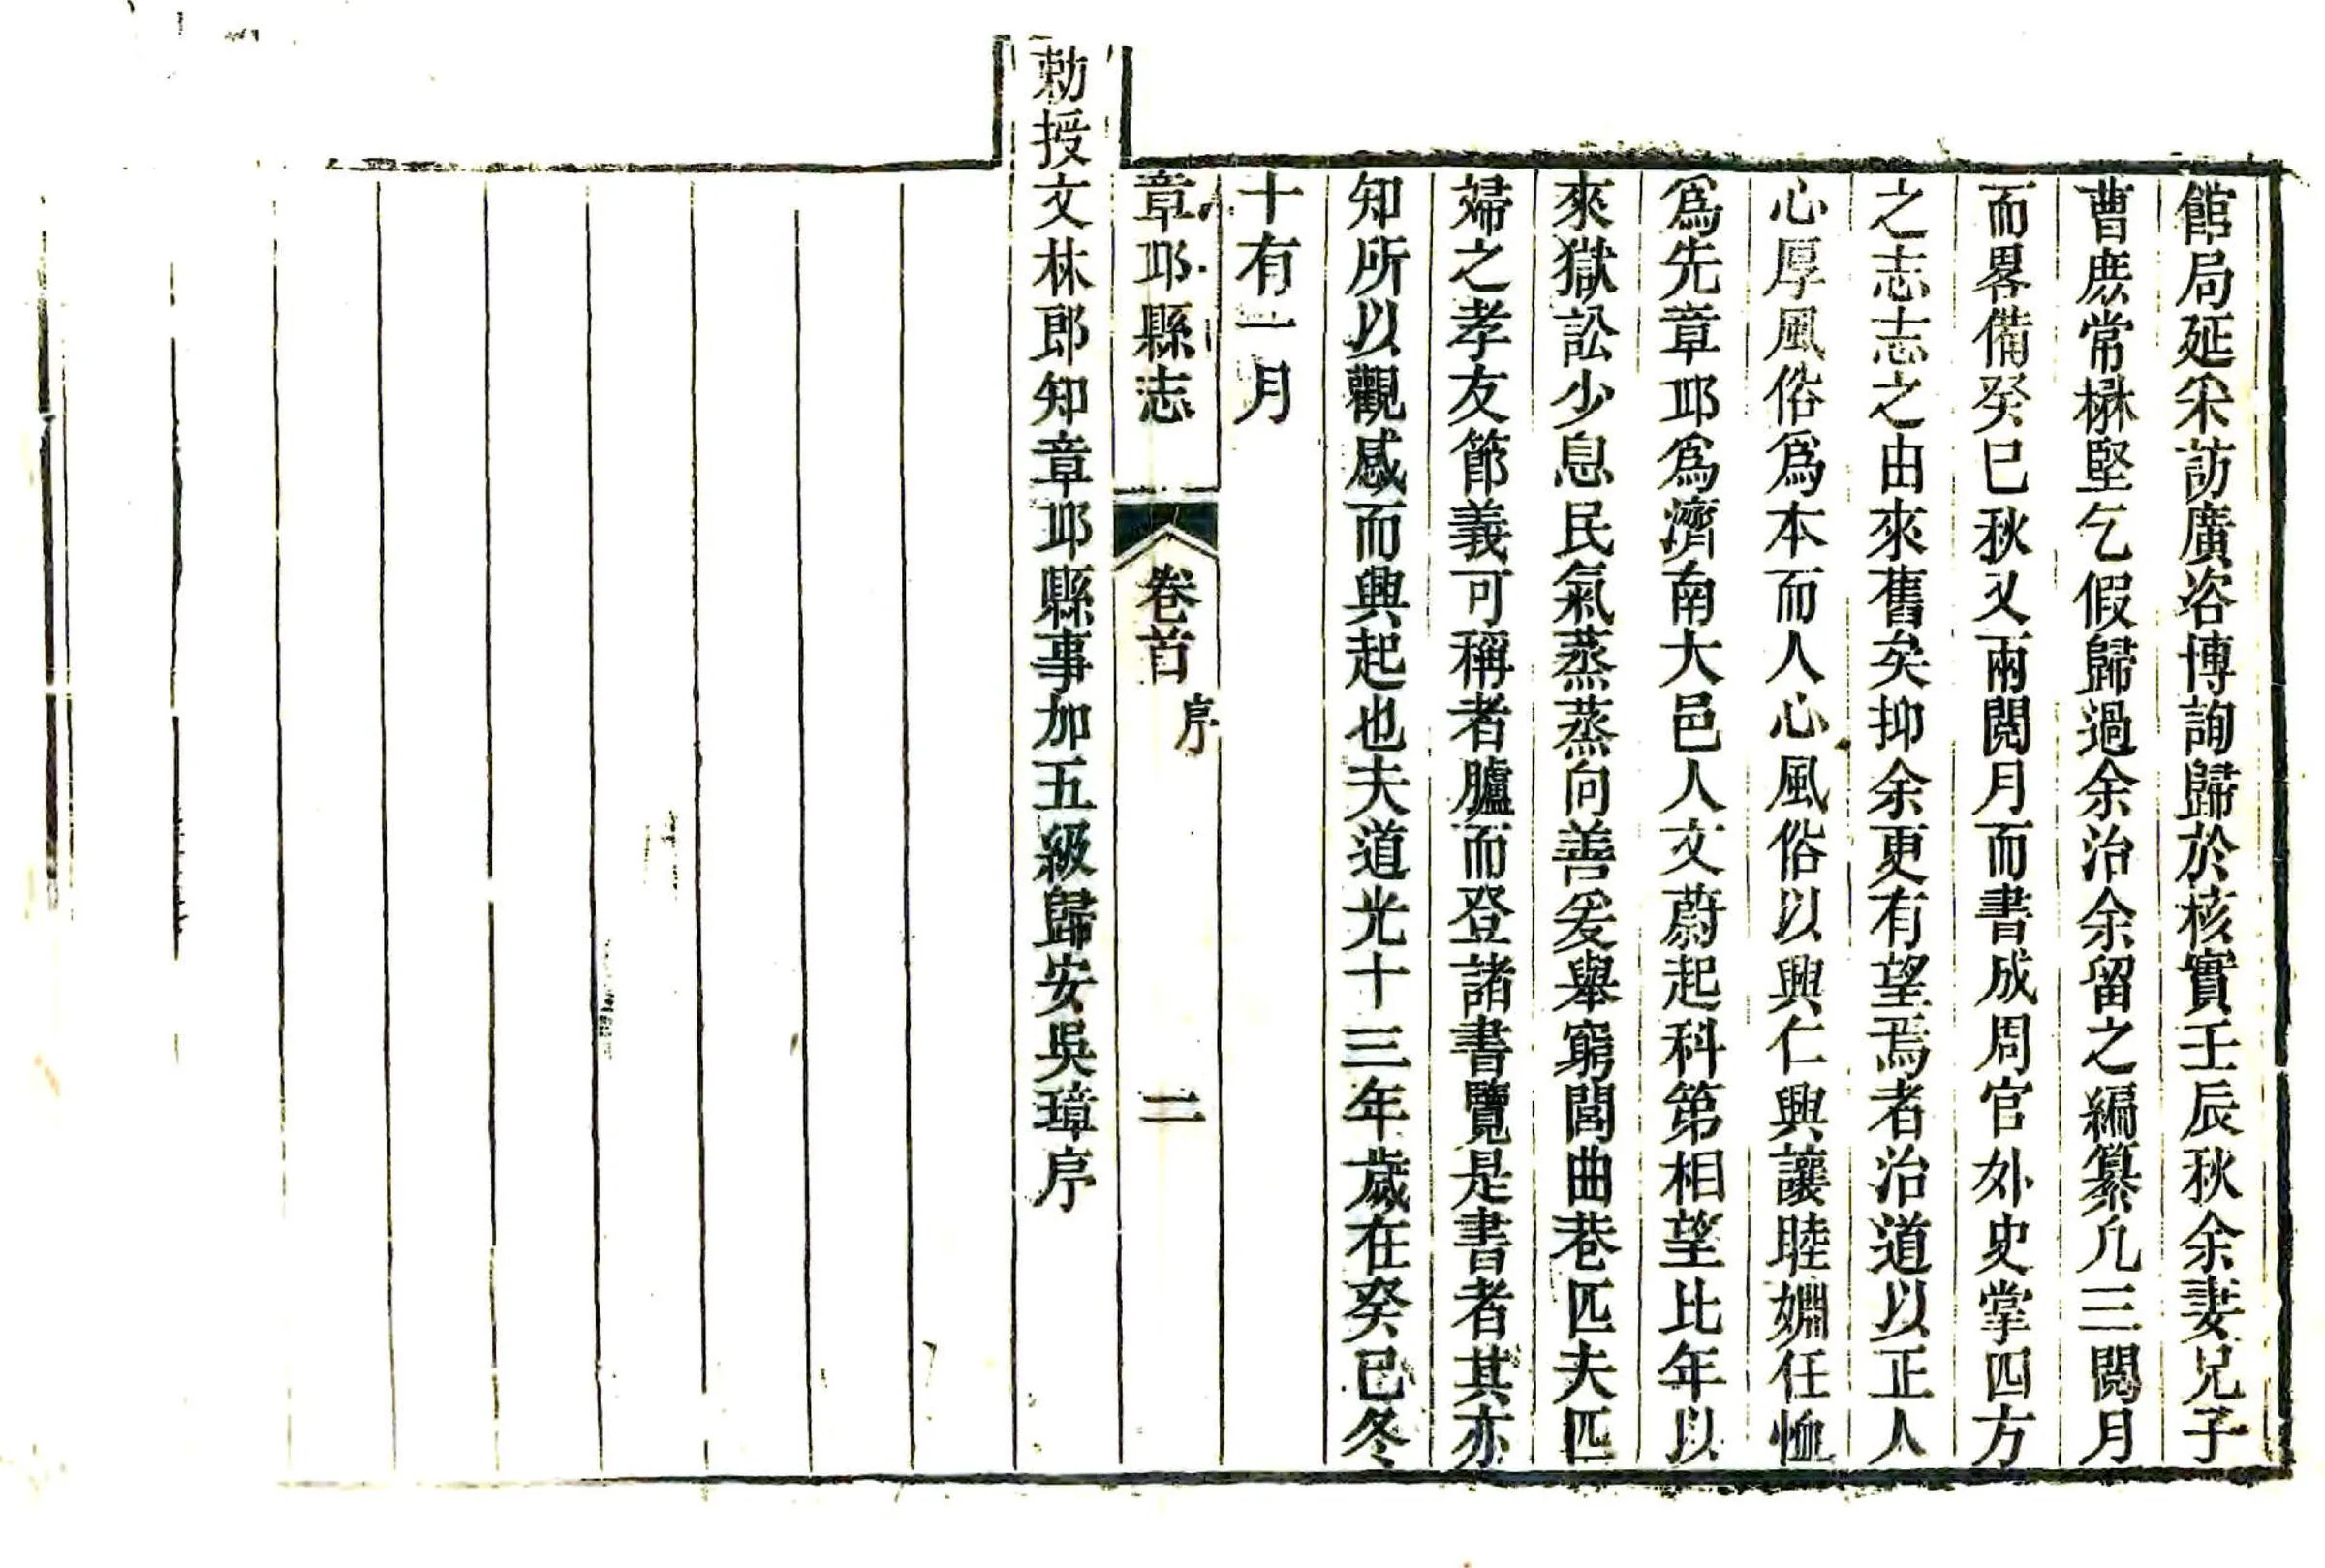 館局延采訪廣咨博詢歸於核實壬辰秋余妻兄子
曹庶常楙堅乞假歸過余治余留之編纂凡三閱月
而畧備癸巳秋又兩閱月而書成周官外史掌四方
之志志之由來舊矣抑余更有望焉者治道以正人
心厚風俗爲本而人心風俗以興仁興讓睦婣任恤
爲先章邱爲濟南大邑人文蔚起科第相望比年以
來獄訟少息民氣蒸蒸向善爰舉窮閻曲巷匹夫匹
婦之孝友節義可稱者臚而登諸書覽是書者其亦
知所以觀感而興起也夫道光十三年歲在癸巳冬
十有一月
章邱縣志 卷首 序 二
勅授文林郎知章邱縣事加五級歸安吳璋序